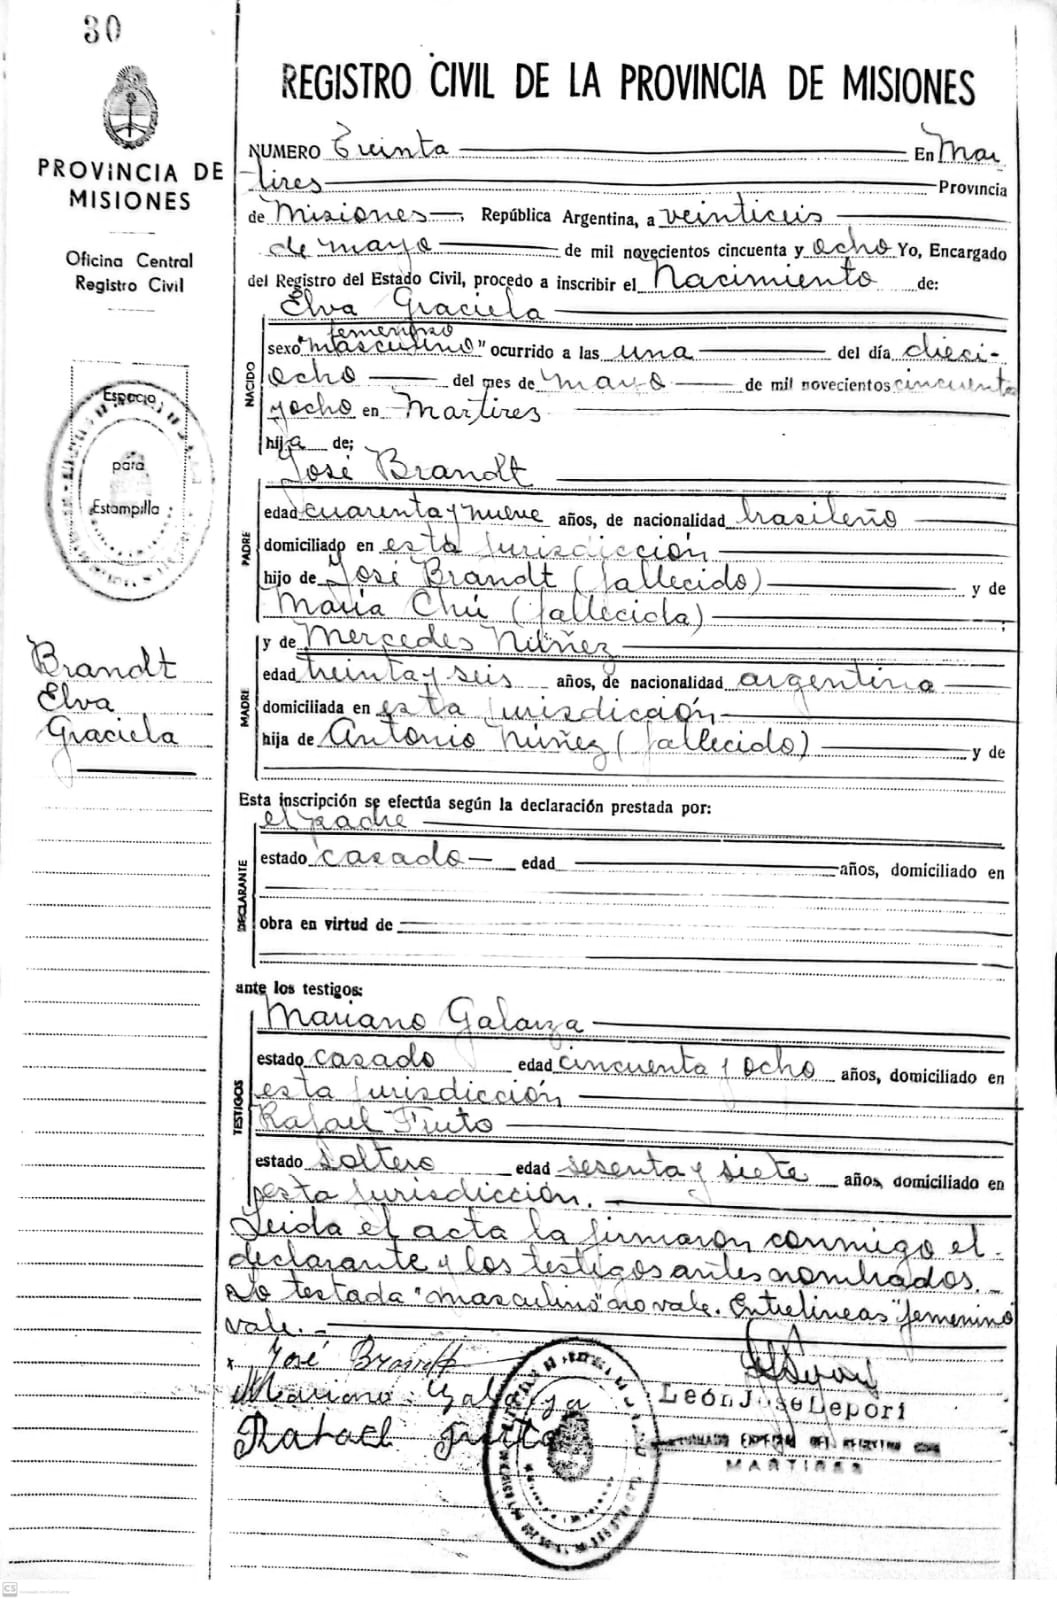 30
PROVINCIA DE
MISIONES
Oficina Central
Registro Civil
Espacio
para
Estampilla
Brandt
Elva
Graciela
REGISTRO CIVIL DE LA PROVINCIA DE MISIONES
NUMERO Treinta En Mar
tires Provincia
de Misiones, República Argentina, a veinticeis
de mayo de mil novecientos cincuenta y ocho Yo, Encargado
del Registro del Estado Civil, procedo a inscribir el Nacimiento de:
NACIDO
Elva Graciela
femenino
sexo "masculino" ocurrido a las una del día dieci-
ocho del mes de mayo de mil novecientos cincuenta
y ocho en Martires
hija de;
PADRE
José Brandt
edad cuarenta y nueve años, de nacionalidad brasileño
domiciliado en esta jurisdicción
hijo de José Brandt (fallecido) y de
Maria Chú (fallecida) ;
MADRE
y de Mercedes Núñez
edad treinta y seis años, de nacionalidad argentina
domiciliada en esta jurisdicción
hija de Antonio Núñez (fallecido) y de
Esta inscripción se efectúa según la declaración prestada por:
DECLARANTE
el padre
estado casado edad años, domiciliado en
obra en virtud de
ante los testigos:
TESTIGOS
Mariano Galarza
estado casado edad cincuenta y ocho años, domiciliado en
esta jurisdicción
Rafael Fruto
estado Soltero edad sesenta y siete años, domiciliado en
esta jurisdicción.
Leida el acta la firmaron conmigo el
declarante y los testigos antes nombrados.
Lo testada "masculino" no vale. Entrelineas "femenino"
vale.
x José Brandt
Mariano Galarza
Rafael Fruto
León Jose Lepori
MARTIRES
CS